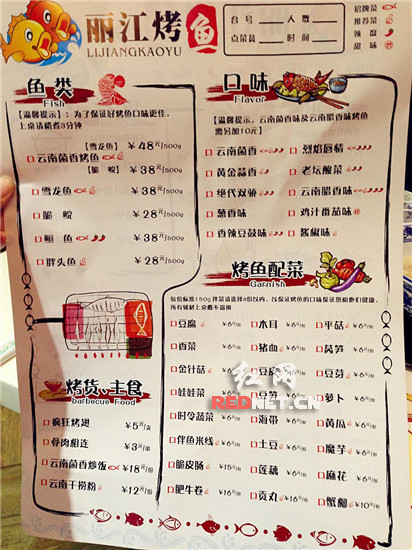 丽江烤鱼
LIJIANGKAOYU
台号 人数
点菜员 时间
招牌菜
推荐菜
辣度
甜味
鱼类
Fish
【温馨提示】:为了保证好烤鱼口味更佳,
上桌请稍煮3分钟
【雪龙鱼】 ￥48元/500g
云南菌香烤鱼
【脆 鲩】 ￥38元/500g
雪龙鱼 ￥38元/500g
脆 鲩 ￥28元/500g
鮰 鱼 ￥38元/500g
胖头鱼 ￥28元/500g
口味
Flavor
【温馨提示,云南菌香味及云南腊香味烤鱼
需另加10元】
云南菌香 烈焰唇情
黄金蒜香 老坛酸菜
绝代双骄 云南腊香味
葱香味 鸡汁番茄味
香辣豆豉味 酱椒味
烤鱼配菜
Garnish
每份标准150g拼菜请选择4份以内,以保证烤鱼的口味保证您和他们健康,
所有辅材上桌概不退换
豆腐 ￥6元/份 木耳 ￥6元/份 平菇 ￥6元/份
香菜 ￥6元/份 猪血 ￥6元/份 莴笋 ￥6元/份
金针菇 ￥6元/份 豆腐 豆芽 ￥6元/份
娃娃菜 ￥6元/份 萝卜 ￥6元/份
时令蔬菜 ￥6元/份 海带 ￥6元/份 黄瓜 ￥6元/份
伴鱼米线 ￥6元/份 土豆 ￥6元/份 魔芋 ￥6元/份
脆皮肠 ￥15元/份 莲藕 ￥6元/份 麻花 ￥6元/份
肥牛卷 ￥16元/份 贡丸 ￥16元/份 蟹棚 ￥10元/份
烤货、主食
Barbecue Food
疯狂烤翅 ￥5元/支
骨肉相连 ￥3元/串
云南菌香炒饭 ￥18元/份
云南干捞粉 ￥12元/份
红网
REDNET.CN